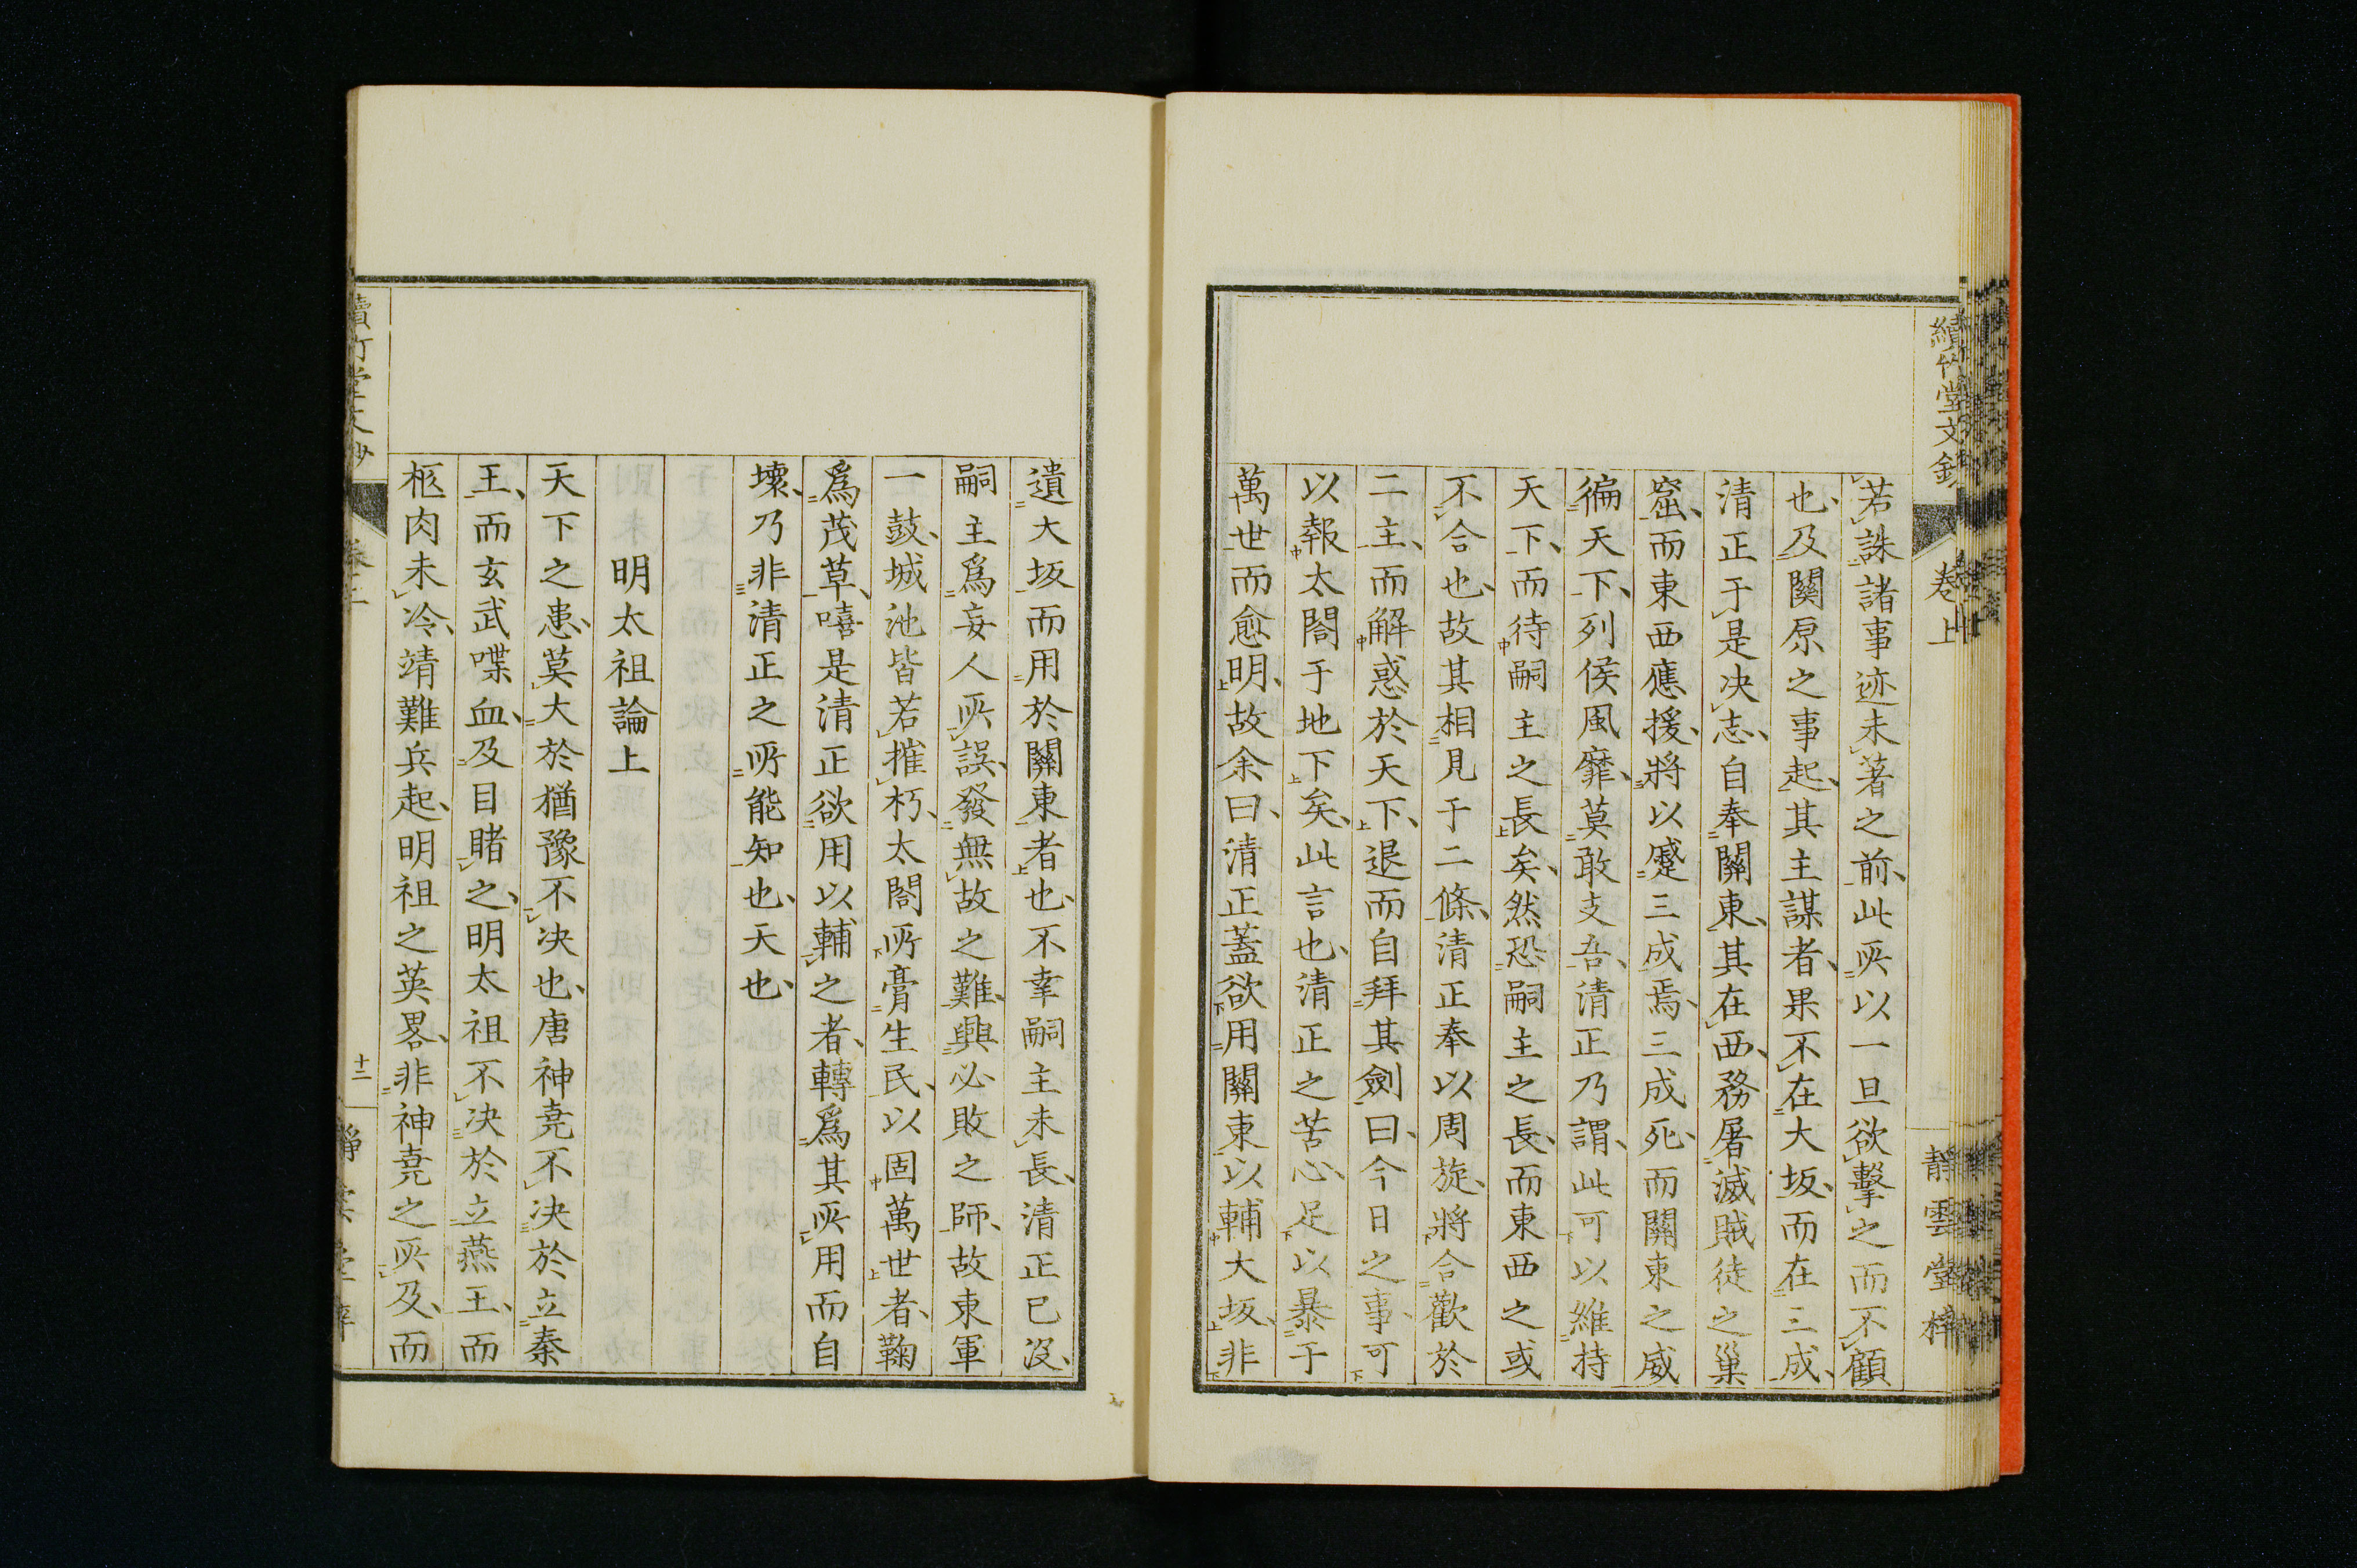 續竹堂文鈔
卷上
靜雲堂梓
若誅諸事迹未著之前、此所以一旦欲擊之而不顧
也、及關原之事起、其主謀者、果不在大坂、而在三成、
清正于是决志、自奉關東、其在西、務屠滅賊徒之巢
窟、而東西應援、將以蹙三成焉、三成死、而關東之威
徧天下、列侯風靡、莫敢支吾、清正乃謂、此可以維持
天下、而待嗣主之長矣、然恐嗣主之長、而東西之或
不合也、故其相見于二條、清正奉以周旋、將合歡於
二主、而解惑於天下、退而自拜其劍、曰、今日之事、可
以報太閤于地下矣、此言也、清正之苦心、足以暴于
萬世而愈明、故余曰、清正蓋欲用關東、以輔大坂、非
遺大坂而用於關東者也、不幸嗣主未長、清正已沒、
嗣主爲妄人所誤、發無故之難、興必敗之師、故東軍
一鼓、城池皆若摧朽、太閤所膏生民、以固萬世者、鞠
爲茂草、嘻是清正欲用以輔之者、轉爲其所用而自
壞、乃非清正之所能知也、天也、
明太祖論上
天下之患、莫大於猶豫不决也、唐神堯不决於立秦
王、而玄武喋血、及目睹之、明太祖不决於立燕王、而
柩肉未冷、靖難兵起、明祖之英畧、非神堯之所及、而
十二